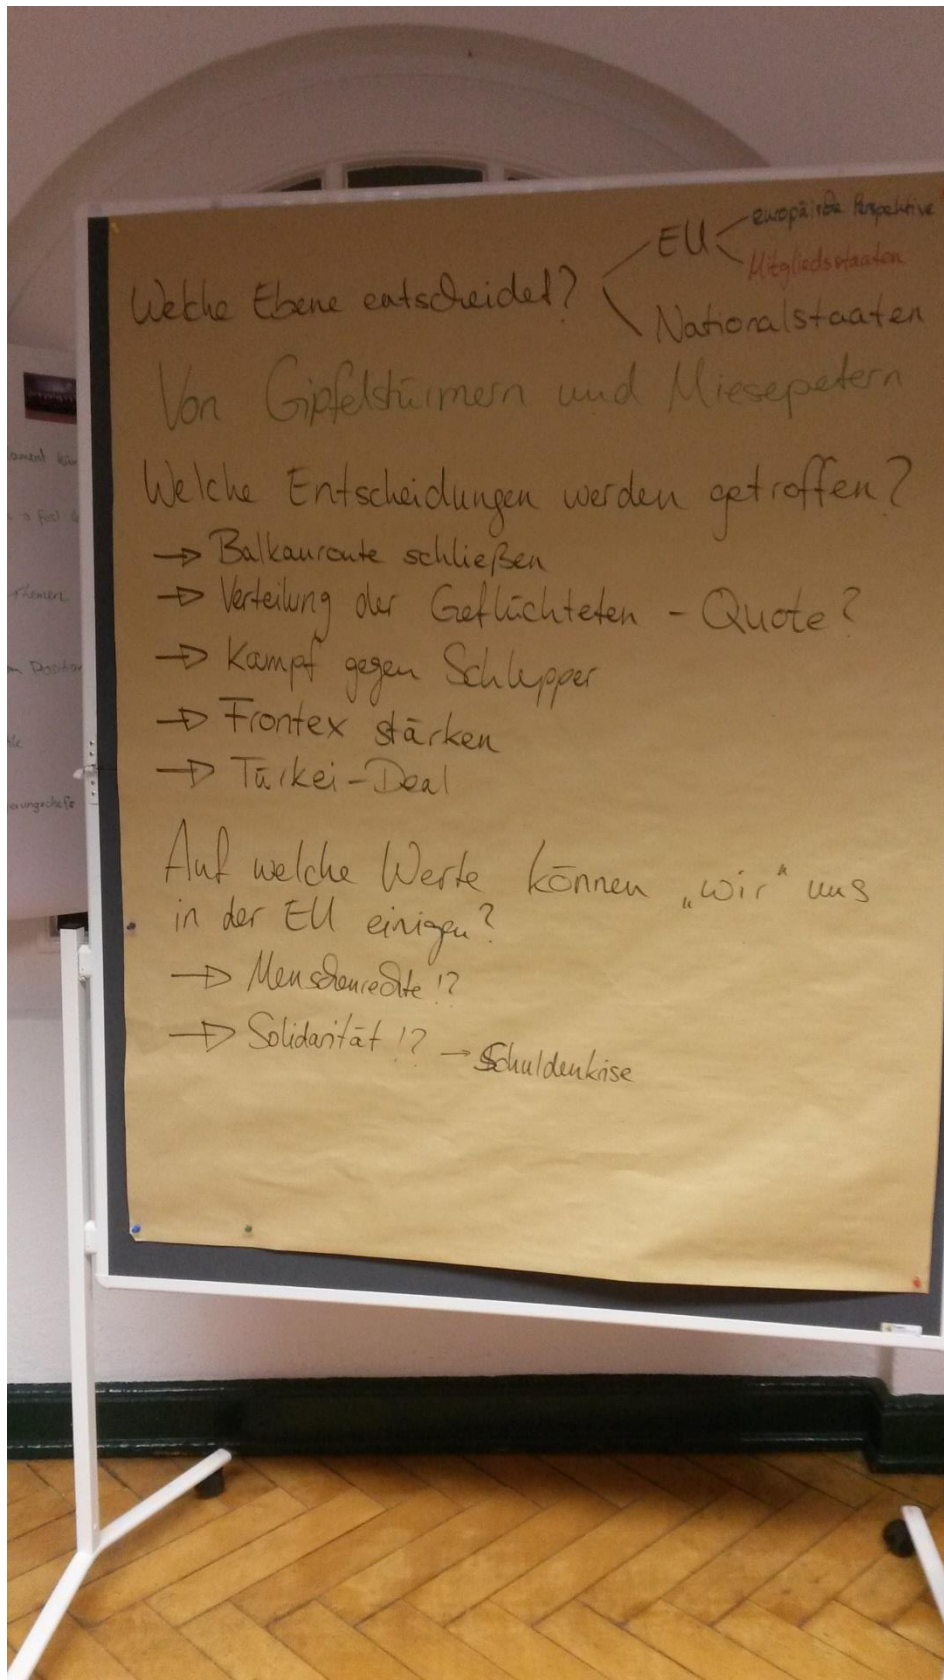 EU
europäische Perspektive
Mitgliedsstaaten
Welche Ebene entscheidet?
Nationalstaaten
Von Gipfelstürmern und Miesepetern
Welche Entscheidungen werden getroffen?
→ Balkanroute schließen
→ Verteilung der Geflüchteten - Quote?
→ Kampf gegen Schlepper
→ Frontex stärken
→ Türkei-Deal
Auf welche Werte können „wir“ uns
in der EU einigen?
→ Menschenrechte!?
→ Solidarität!? → Schuldenkrise
Themen